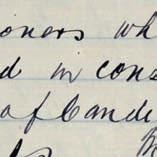 oners wh
d in cons
of Candi